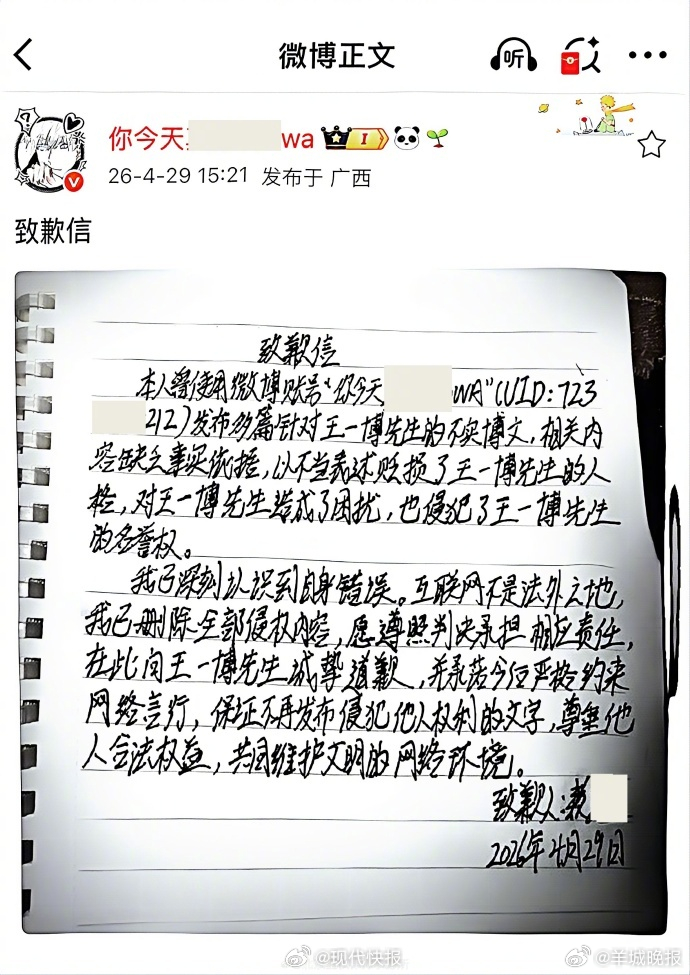 微博正文
听
你今天 wa
I
26-4-29 15:21 发布于 广西
致歉信
致歉信
本人曾使用微博账号“你今天 WA”(UID:723
212)发布多篇针对王一博先生的不实博文,相关内
容缺乏事实依据,以不当表述贬损了王一博先生的人
格,对王一博先生造成了困扰,也侵犯了王一博先生
的名誉权。
我已深刻认识到自身错误。互联网不是法外之地,
我已删除全部侵权内容,愿遵照判决承担相应责任,
在此向王一博先生诚挚道歉,并承诺今后严格约束
网络言行,保证不再发布侵犯他人权利的文字,尊重他
人合法权益,共同维护文明的网络环境。
致歉人:
2026年4月29日
@现代快报
@羊城晚报